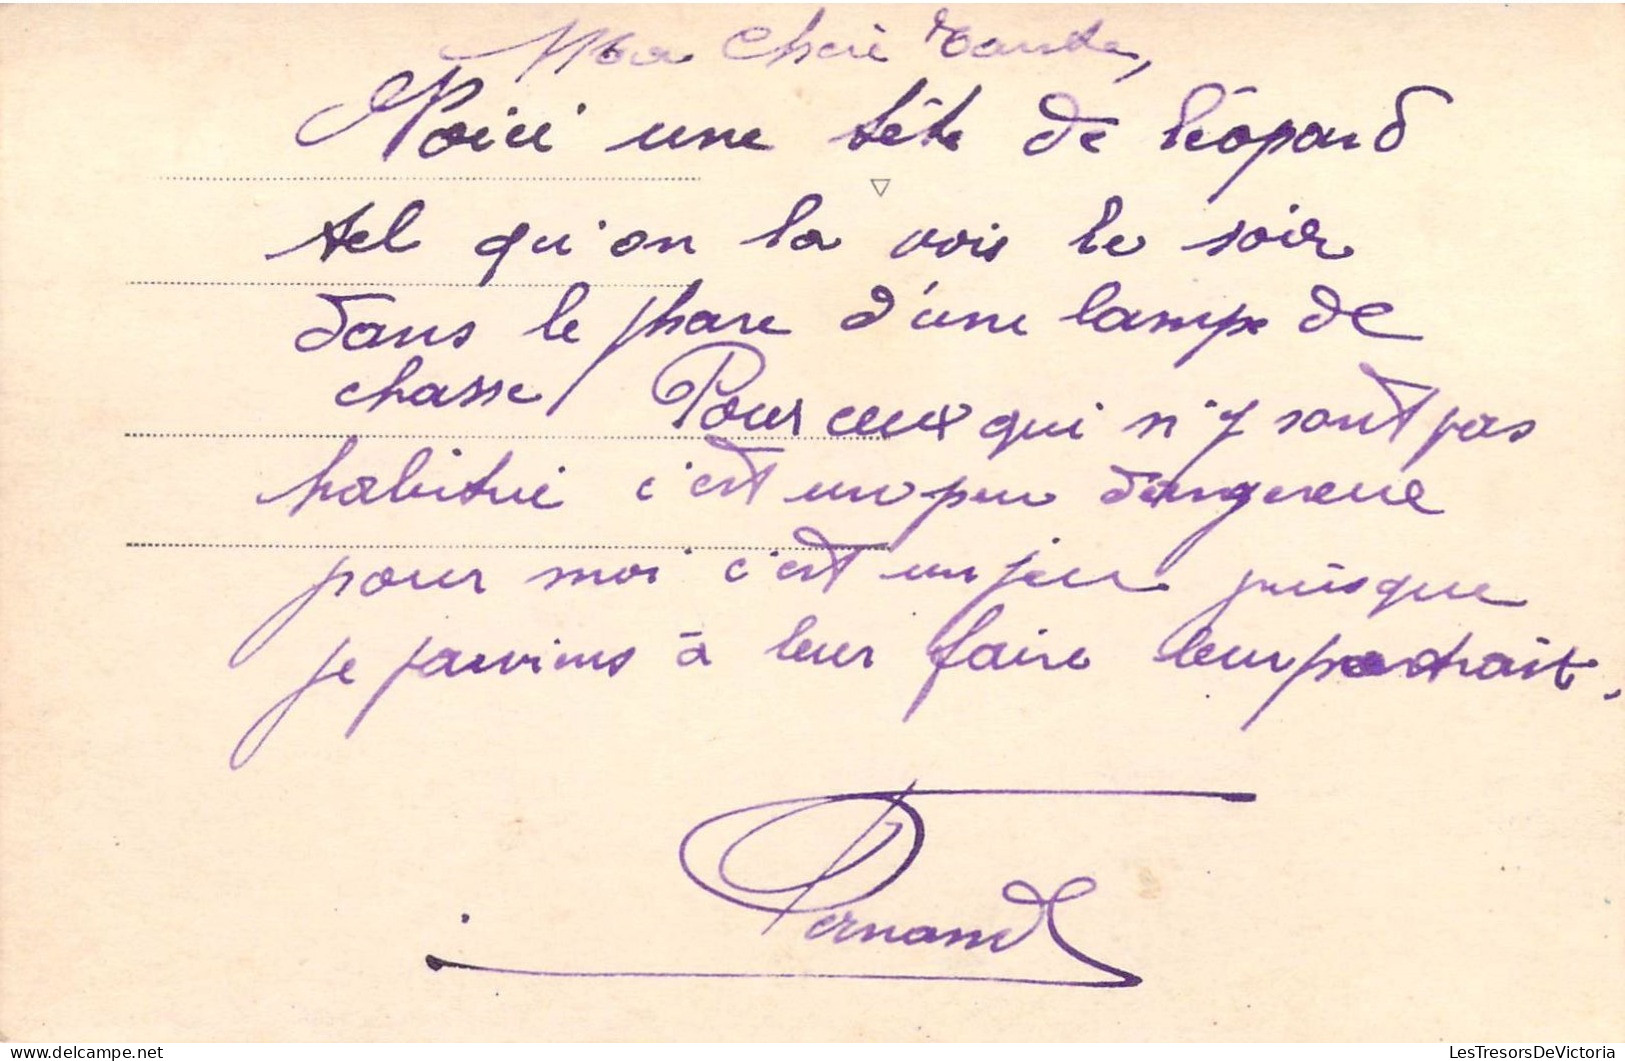 Ma Chère Tante,
Voici une tête de léopard
tel qu'on la vois le soir
dans le phare d'une lampe de
chasse Pour ceux qui n'y sont pas
habitué c'est un peu dangereux
pour moi c'est un jeu puisque
je parviens à leur faire leur portrait.
Fernand
LesTresorsDeVictoria